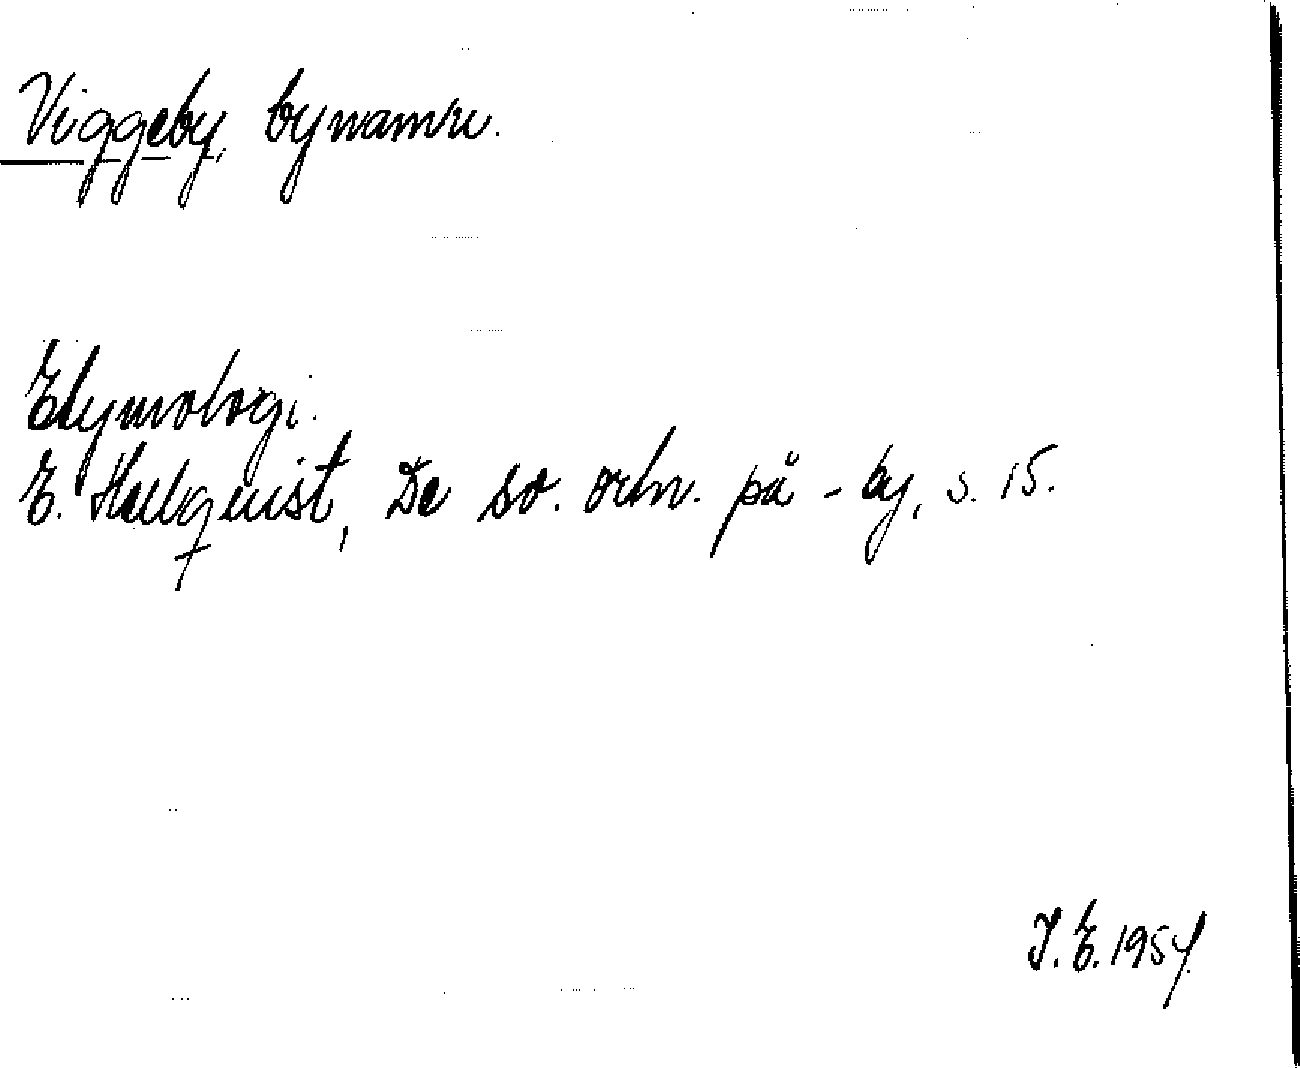 Viggeby, bynamn.
Etymologi.
E. Hellquist, De sv. ortn. på -by, s. 15.
I. E. 1954.